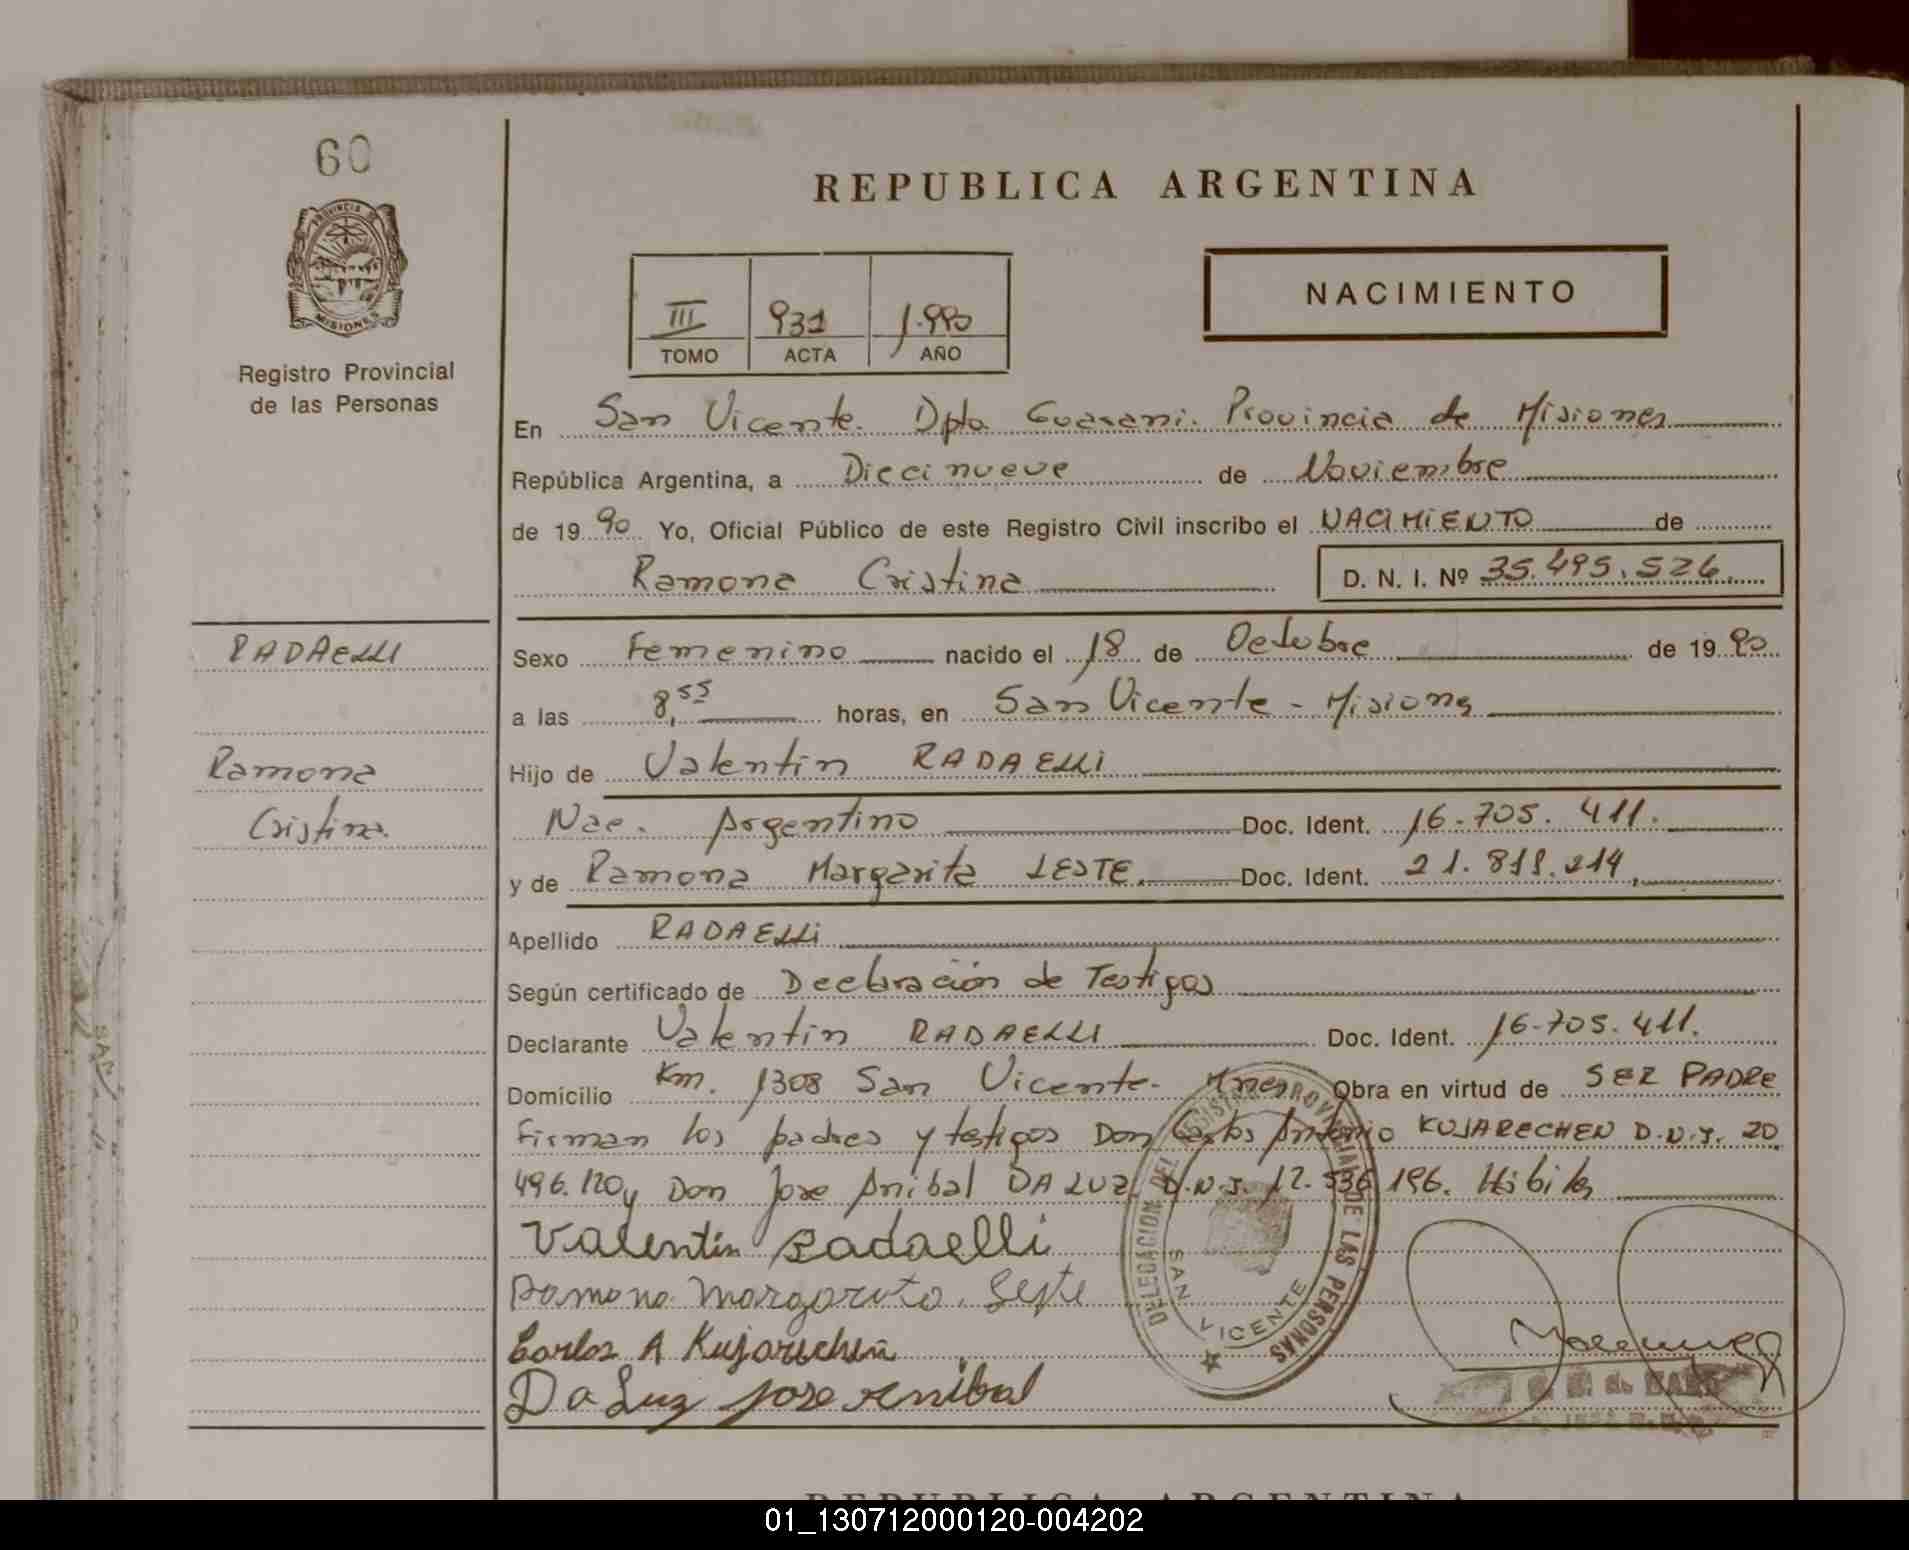 60
PROVINCIA DE
MISIONES
Registro Provincial
de las Personas
REPUBLICA ARGENTINA
III 931 1.990
TOMO ACTA AÑO
NACIMIENTO
En San Vicente. Dpto. Guarani. Provincia de Misiones
República Argentina, a Diecinueve de Noviembre
de 1990 Yo, Oficial Público de este Registro Civil inscribo el NACIMIENTO de
Ramona Cristina
D. N. I. Nº 35.495.526
RADAELLI
Ramona
Cristina.
Sexo Femenino nacido el 18 de Octubre de 1990
a las 8,55 horas, en San Vicente - Misiones
Hijo de Valentin RADAELLI
Nac. Argentino Doc. Ident. 16.705.411.
y de Ramona Margarita LESTE. Doc. Ident. 21.818.214,
Apellido RADAELLI
Según certificado de Declaración de Testigos
Declarante Valentin RADAELLI Doc. Ident. 16.705.411.
Domicilio Km. 1308 San Vicente. Mnes Obra en virtud de SER PADRE
Firman los padres y testigos Don Carlos Antonio KUJARECHEN D.N.I. 20
496.120 y Don Jose Anibal DA LUZ D.N.I. 12.536.196. Hábiles
Valentin Radaelli
Ramona Margarita Leste
Carlos A Kujarechen
Da Luz Jose Anibal
DELEGACION DEL REGISTRO PROVINCIAL DE LAS PERSONAS
SAN VICENTE
REPUBLICA ARGENTINA
01_130712000120-004202